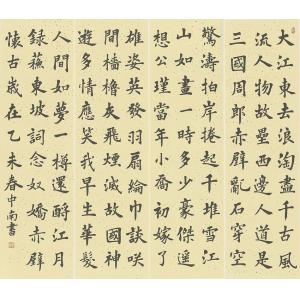 大江東去浪淘盡千古風
流人物故壘西邊人道是
三國周郎赤壁亂石穿空
驚濤拍岸捲起千堆雪江
山如畫一時多少豪傑遙
想公瑾當年小喬初嫁了
雄姿英發羽扇綸巾談咲
間檣櫓灰飛煙滅故國神
遊多情應笑我早生華髮
人間如夢一樽還酹江月
録蘇東坡詞念奴嬌赤壁
懷古歲在乙未春中南書